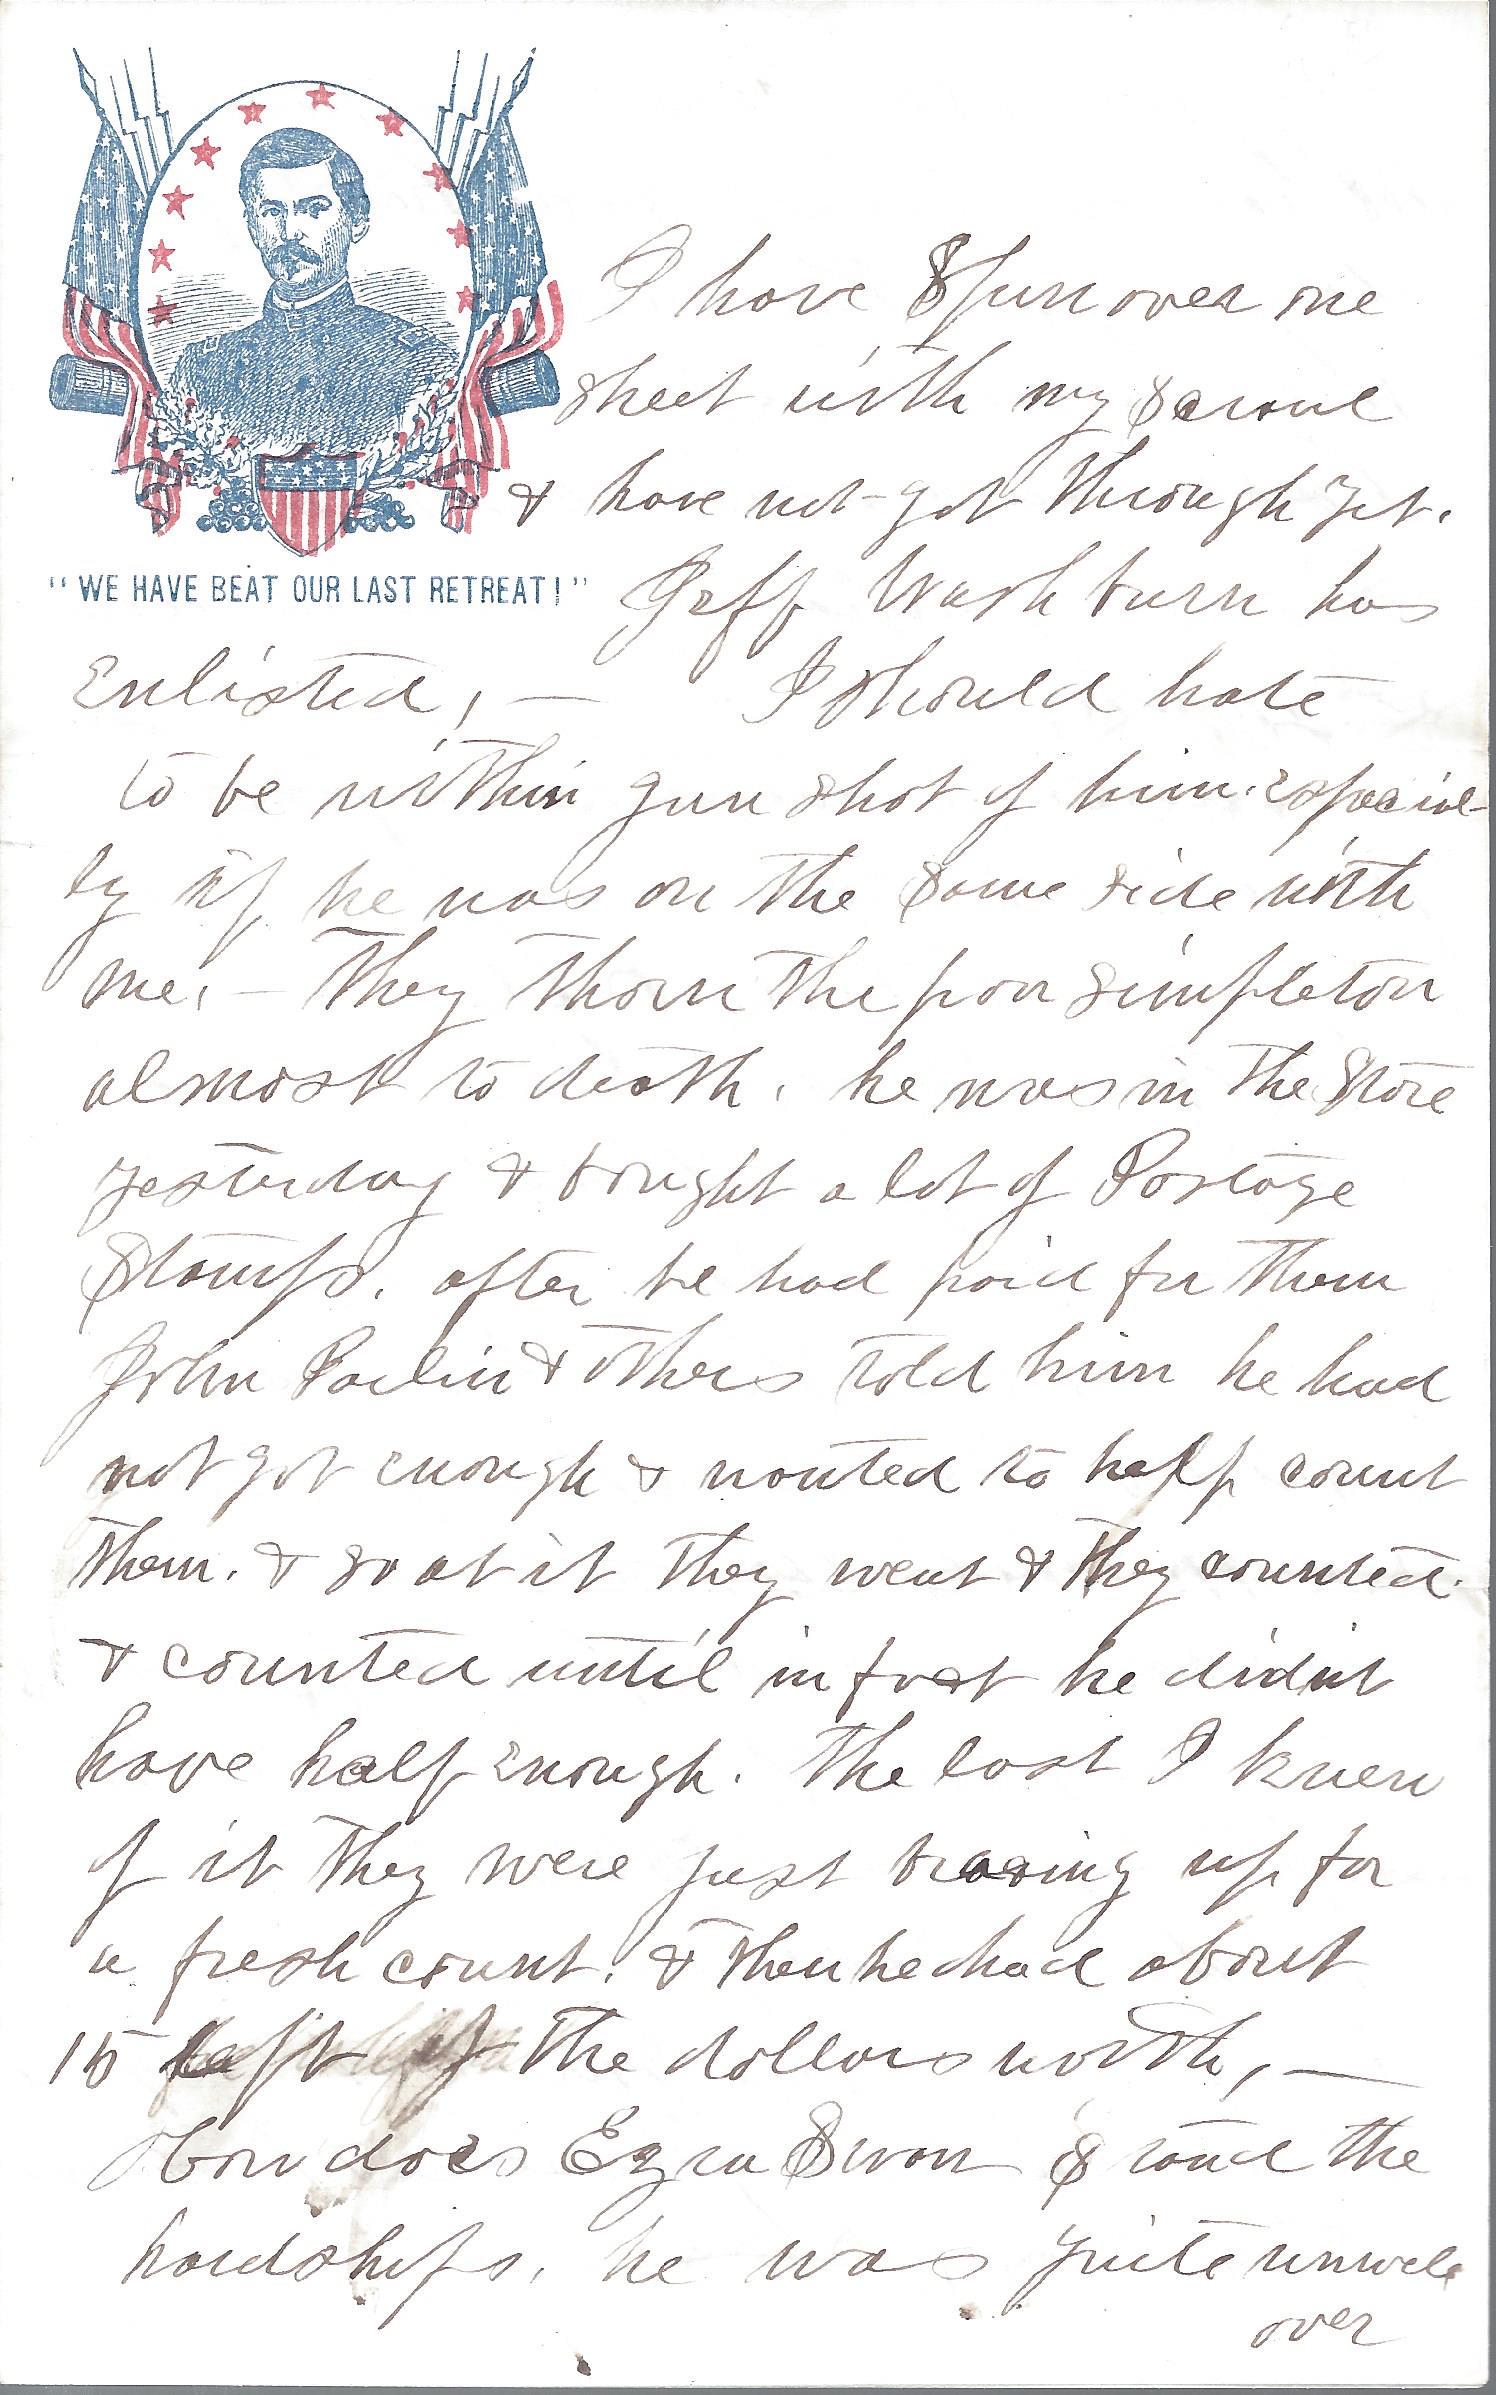 I have Spun over one
sheet with my scrawl
& have not got through yet.
"WE HAVE BEAT OUR LAST RETREAT!"
Jeff Washburn has
Enlisted, — I should hate
to be within gun shot of him. especial-
ly if he was on the same side with
me. — They thorn the poor simpleton
almost to death. he was in the Store
yesterday & bought a lot of Postage
Stamps. after he had paid for them
John & others told him he had
not got enough & wanted to help count
them. & so at it they went & they counted.
& counted until in fact he didnt
have half enough. The last I knew
of it they were just bracing up for
a fresh count. & then he had about
15 left of the dollars worth, —
How does Ezra Swan Stand the
hardships. he was quite unwell
over